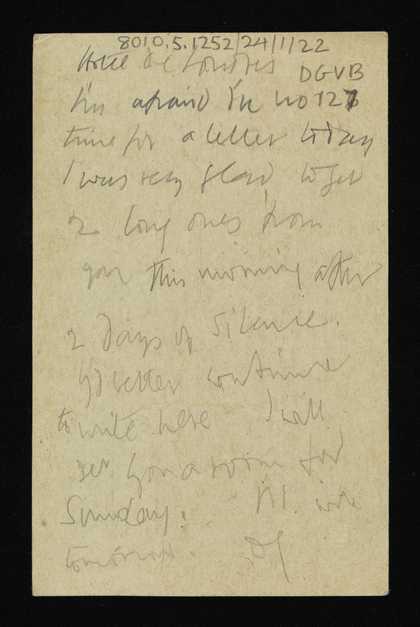 8010.5.1252/24/1/22
Hotel de Londres DGVB
I'm afraid I've no 127
time for a letter today
I was very glad to get
2 long ones from
you this morning after
2 days of silence.
better continue
to write here I will
get you a room for
Sunday. I'll write
tomorrow. DG